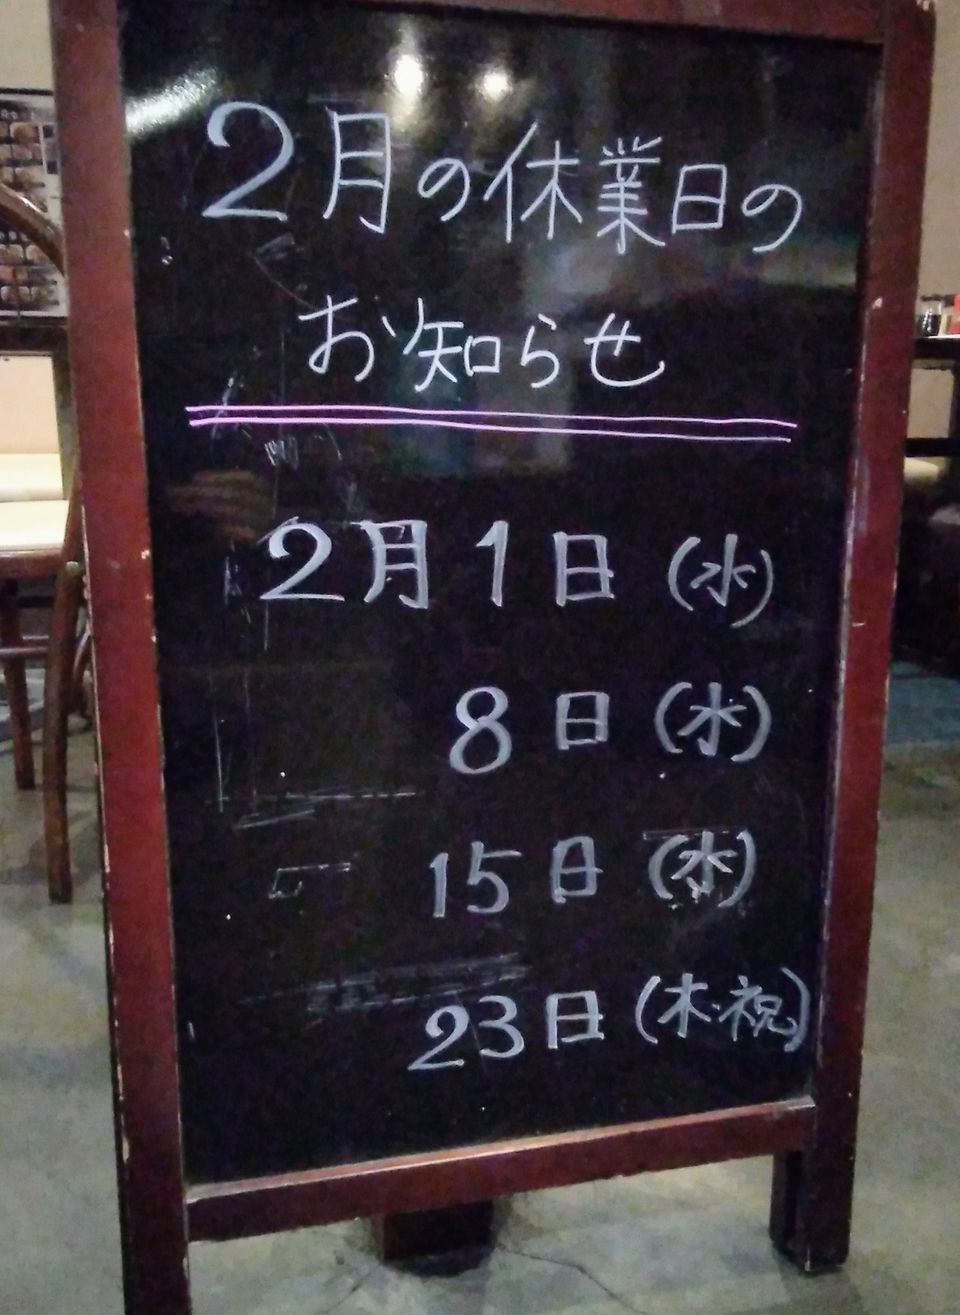 2月の休業日の
お知らせ
2月1日(水)
8日(水)
15日(水)
23日(木・祝)